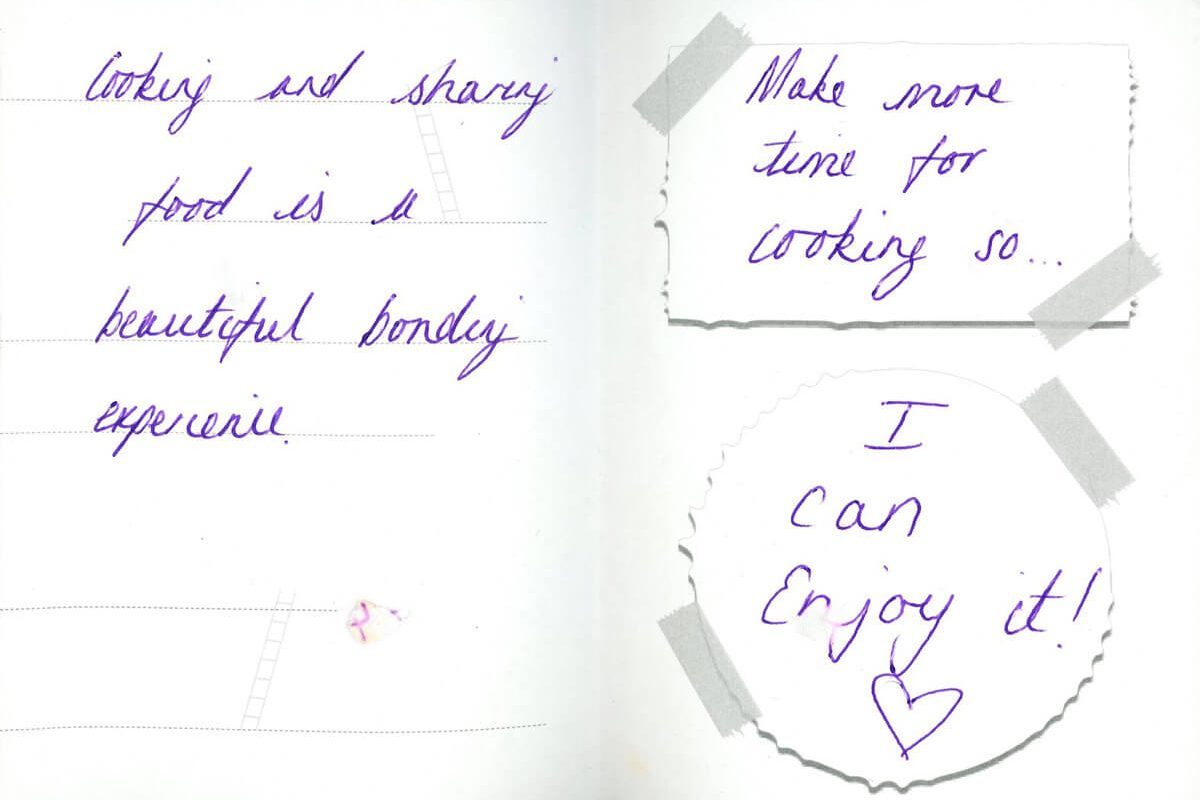 Cooking and sharing
food is a
beautiful bonding
experience.
Make more
time for
cooking so...
I
can
Enjoy it!